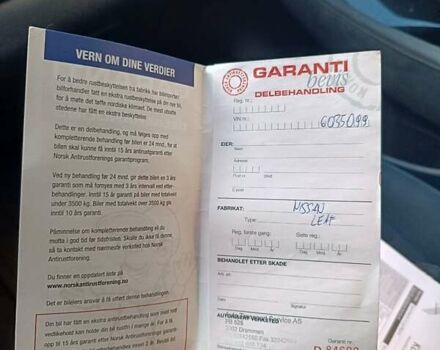 VERN OM DINE VERDIER
For å bedre rustbeskyttelsen fra fabrikk har bilimportør/
bilforhandler tatt en ekstra rustbeskyttelse på din nye bil,
for å møte det tøffe nordiske klimaet. De mest utsatte
stedene har fått en ekstra beskyttelse.
Dette er en delbehandling, og må følges opp med
komplett behandling før bilen er 24 mnd. for at
bilen skal kunne få inntil 15 års antirustgaranti etter
Norsk Antirustforenings garantiprogram.
Ved ny behandling før 24 mnd. gir dette bilen en 3 års
garanti som må fornyes med 3 års intervall ved etter-
behandlinger. Inntil 15 år garanti på biler med totalvekt
under 3500 kg. Biler med totalvekt over 3500 kg gis
inntil 10 års garanti.
Påminnelse om kompletterende behandling vil du
motta i god tid før tidsfristen. Skulle du ikke få denne,
så ta kontakt med nærmeste verksted hos Norsk
Antirustforening.
Du finner en oppdatert liste på
www.norskantirustforening.no
Det er bileiers ansvar å få utført denne behandlingen.
Din bil har fått en ekstra antirustbehandling som med
vedlikehold kan holde din bil rustfri i mange år. For å få
GARANTI
bevis
DELBEHANDLING
Reg. nr.:
VIN nr.:
6035099
EIER:
Navn
Adresse
Postnr. Sted
E-postadr.
FABRIKAT: NISSAN
Type: LEAF
Reg. første gang: Siste reg.:
Dag Mnd År Dag Mnd År
BEHANDLET ETTER SKADE
Ant. art.
Dag Mnd År
AUTORISERT VERKSTED
Service AS
PB 528
3002 Drammen
Garanti nr.